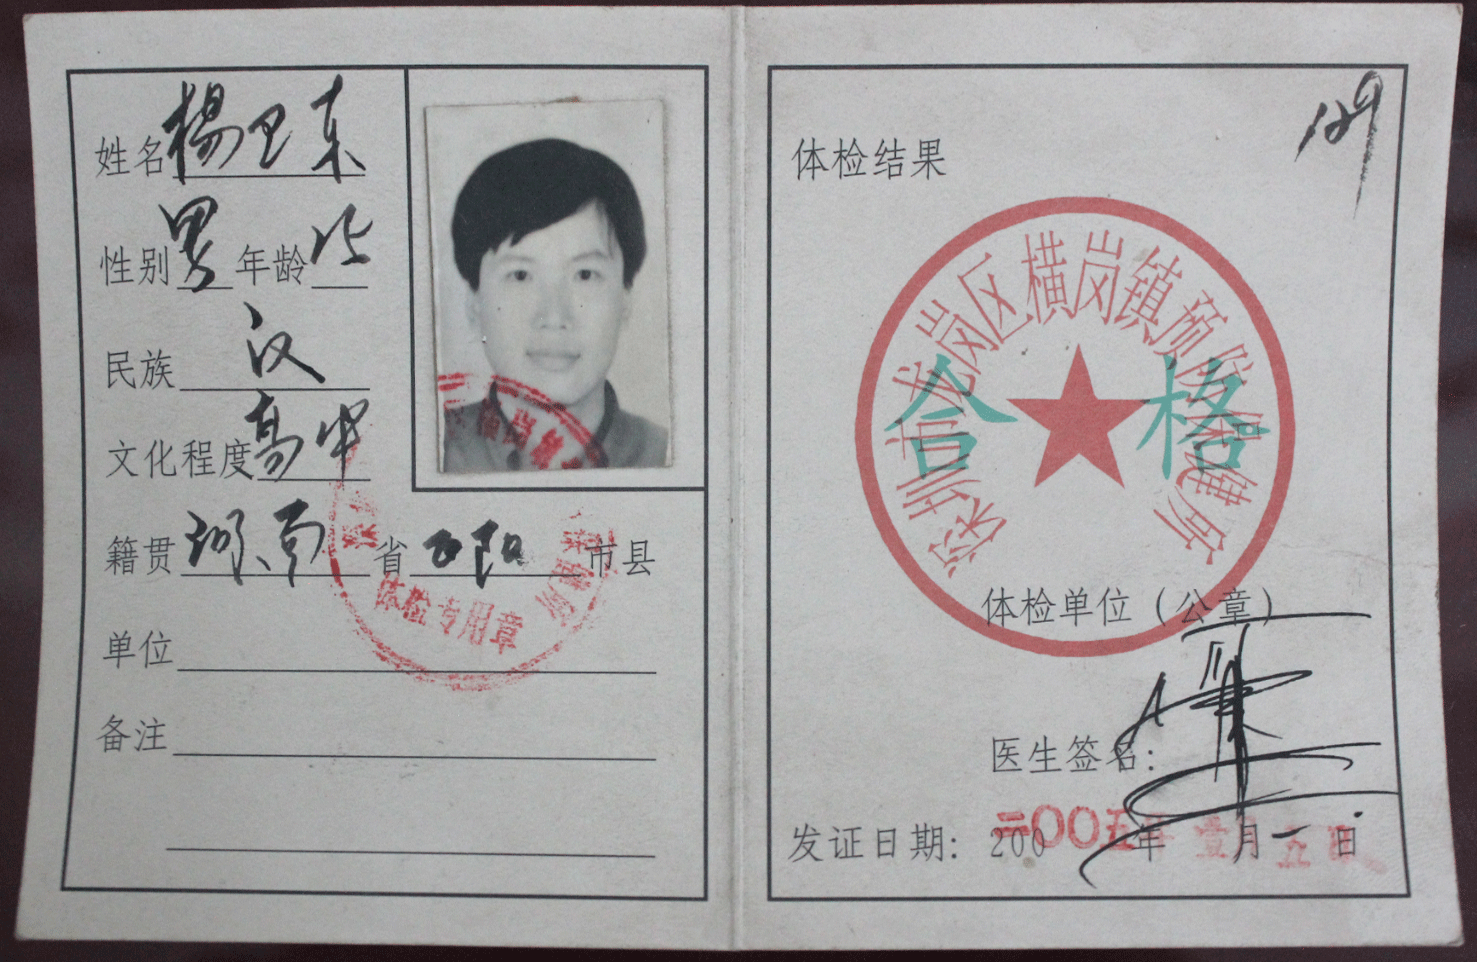 姓名 楊卫东
性别 男 年龄
民族 汉
文化程度 高中
籍贯 河南 省 阳 市县
体检专用章
单位
备注
129
体检结果
深圳市龙岗区横岗镇预防保健所
合格
体检单位（公章）
医生签名：
发证日期： 200 年 月 日
二〇〇五年 壹月 五日